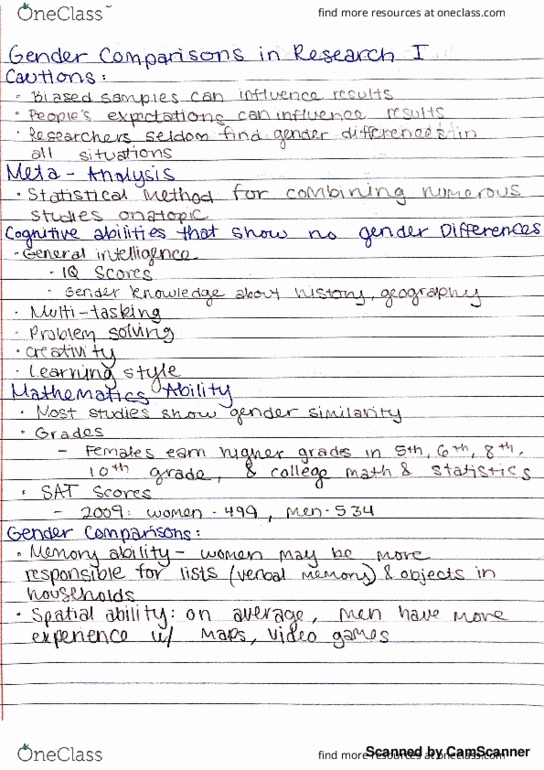 OneClass
find more resources at oneclass.com
Gender Comparisons in Research I
Cautions:
- Biased samples can influence results
• People's expectations can influence results
• Researchers seldom find gender differences in
all situations
Meta-Analysis
• Statistical method for combining numerous
studies on a topic
Cognitive abilities that show no gender Differences
- General intelligence
• IQ Scores
• Gender knowledge about history, geography
• Multi-tasking
• Problem solving
• creativity
• Learning style
Mathematics Ability
• Most studies show gender similarity
• Grades
– Females earn higher grades in 5th, 6th, 8th,
10th grade, & college math & statistics
• SAT Scores
– 2009: women - 499, men - 534
Gender Comparisons:
• Memory ability – women may be more
responsible for lists (verbal memory) & objects in
households
• Spatial ability: on average, men have more
experience w/ maps, video games
OneClass
find more resources at oneclass.com
Scanned by CamScanner